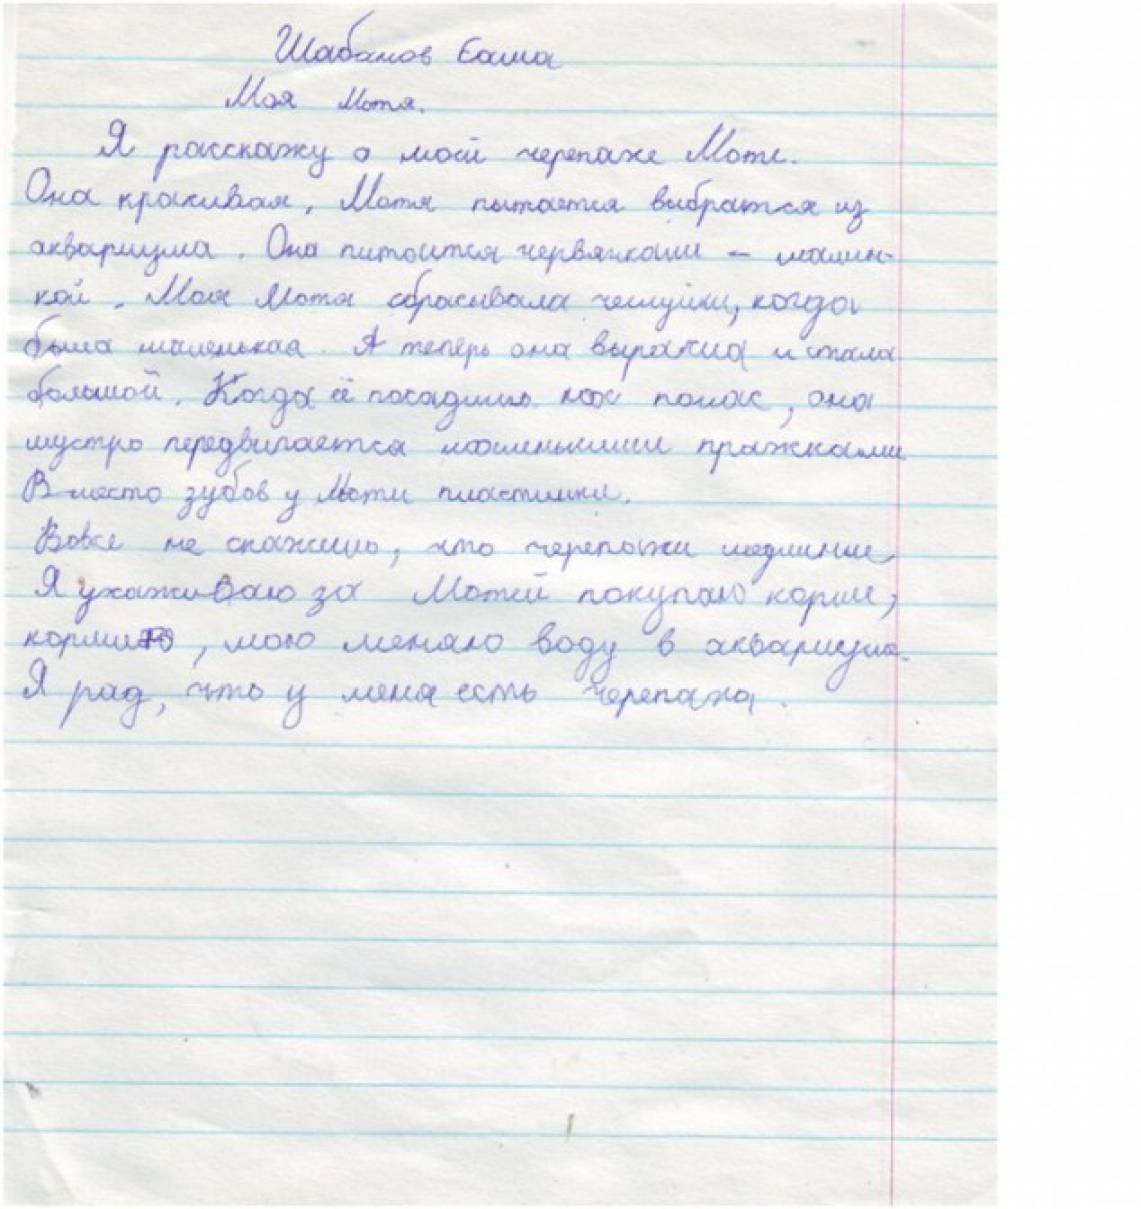 Шабанов Саша
Моя Мотя.
Я расскажу о моей черепахе Моте.
Она красивая. Мотя пытается выбратся из
аквариума. Она питается червячками – малин-
кой. Моя Мотя сбрасывала чешуйки, когда
была маленькая. А теперь она выросла и стала
большой. Когда её посадишь на палас, она
шустро передвигается маленькими прыжками
Вместо зубов у Моти пластинки.
Вовсе не скажешь, что черепахи медлиные
Я ухаживаю за Мотей покупаю корм,
кормлю, мою меняю воду в аквариуме.
Я рад, что у меня есть черепаха.